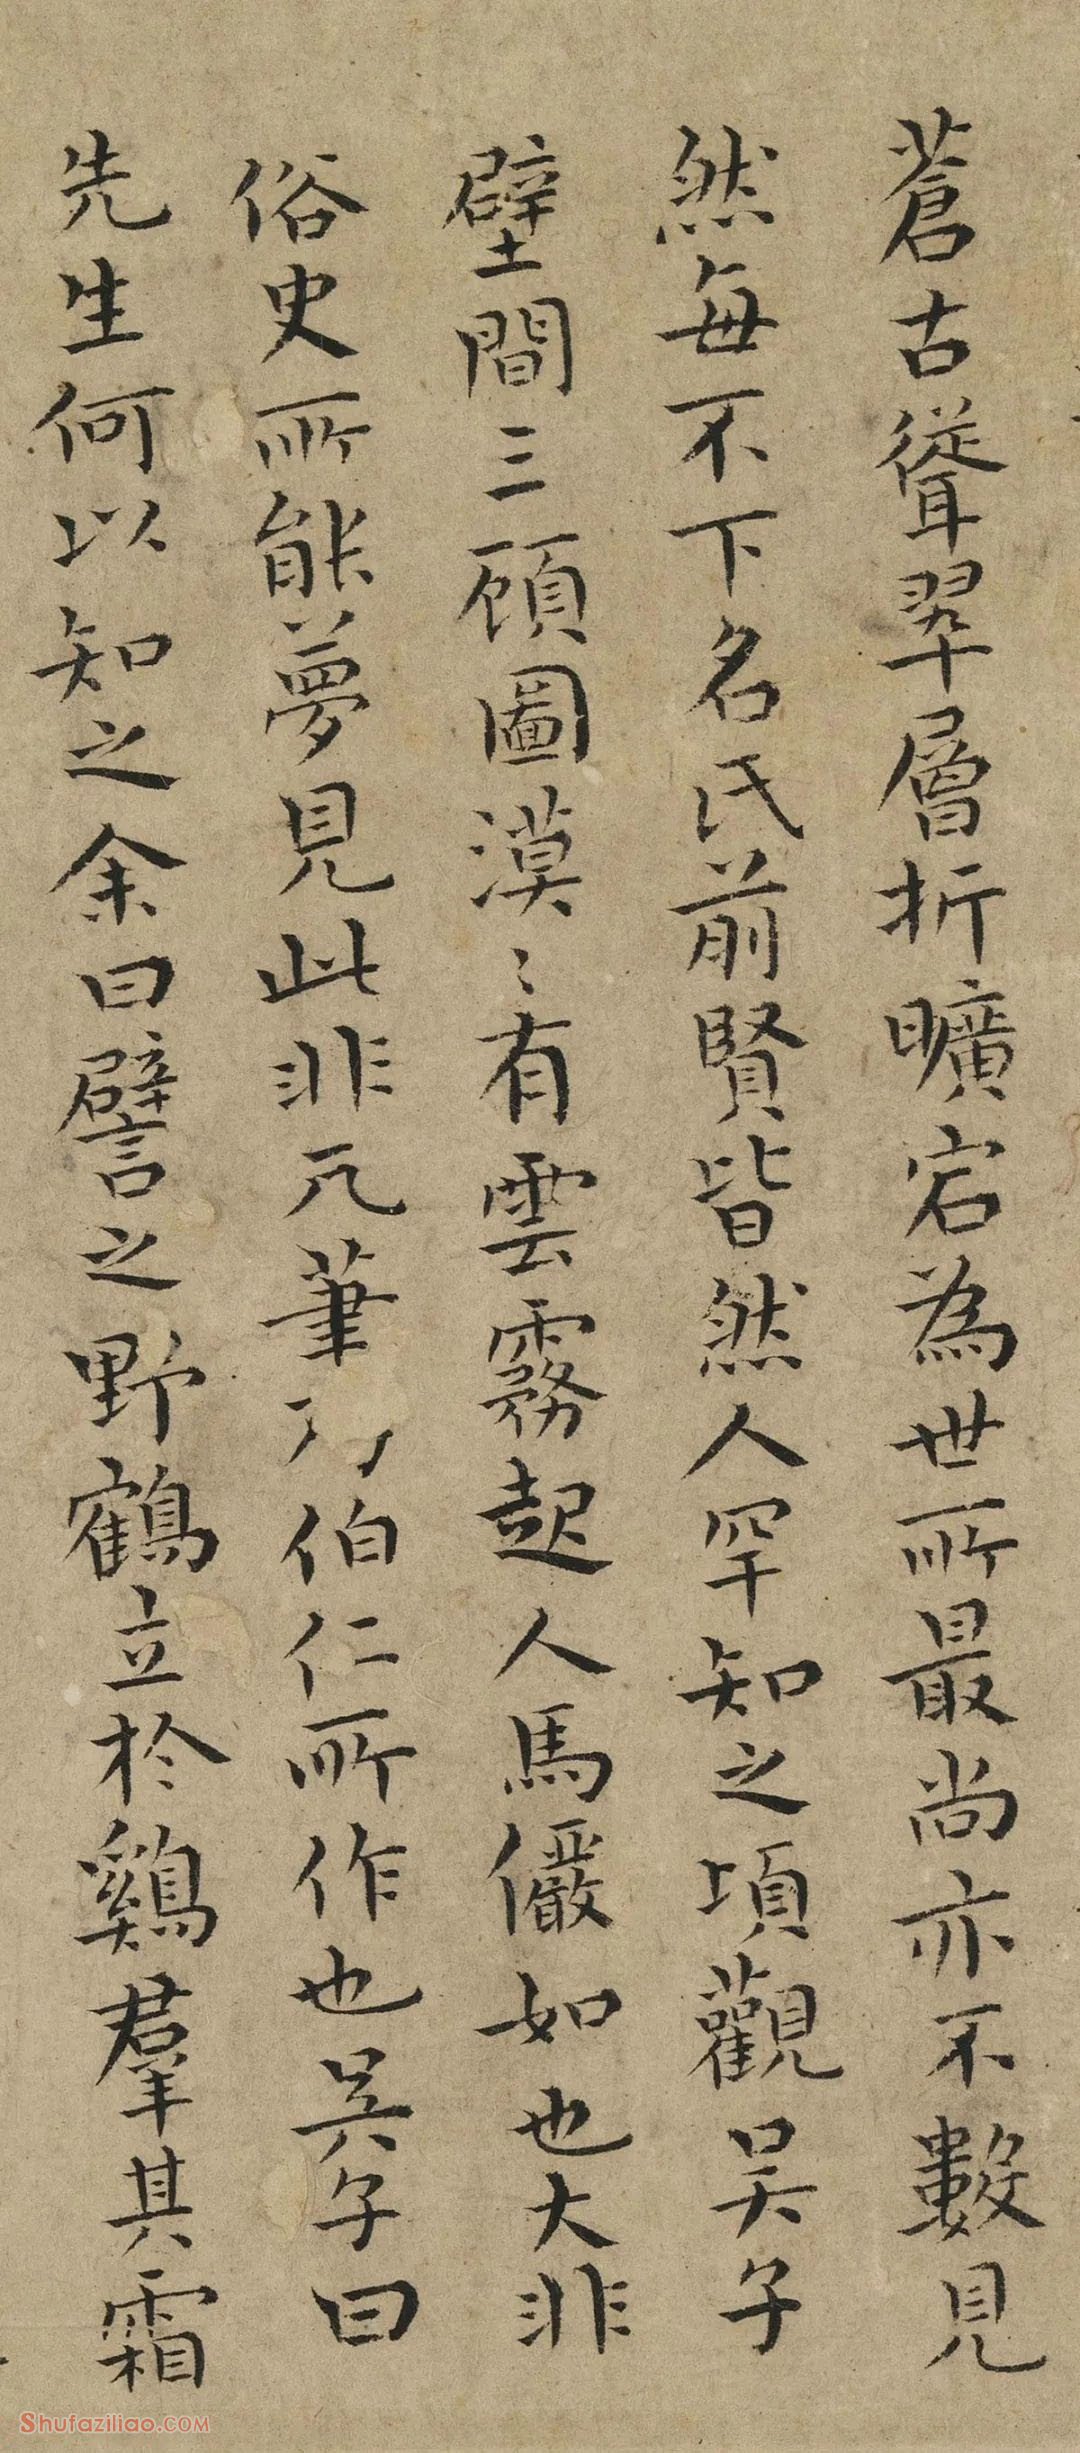 蒼古聳翠層折曠宕為世所最尚亦不數見
然每不下名氏前賢皆然人罕知之頃觀吴子
壁間三顧圖漠〻有雲霧起人馬儼如也大非
俗史所能夢見此非凡筆乃伯仁所作也吴子曰
先生何以知之余曰譬之野鶴立於鷄羣其霜
Shufaziliao.COM